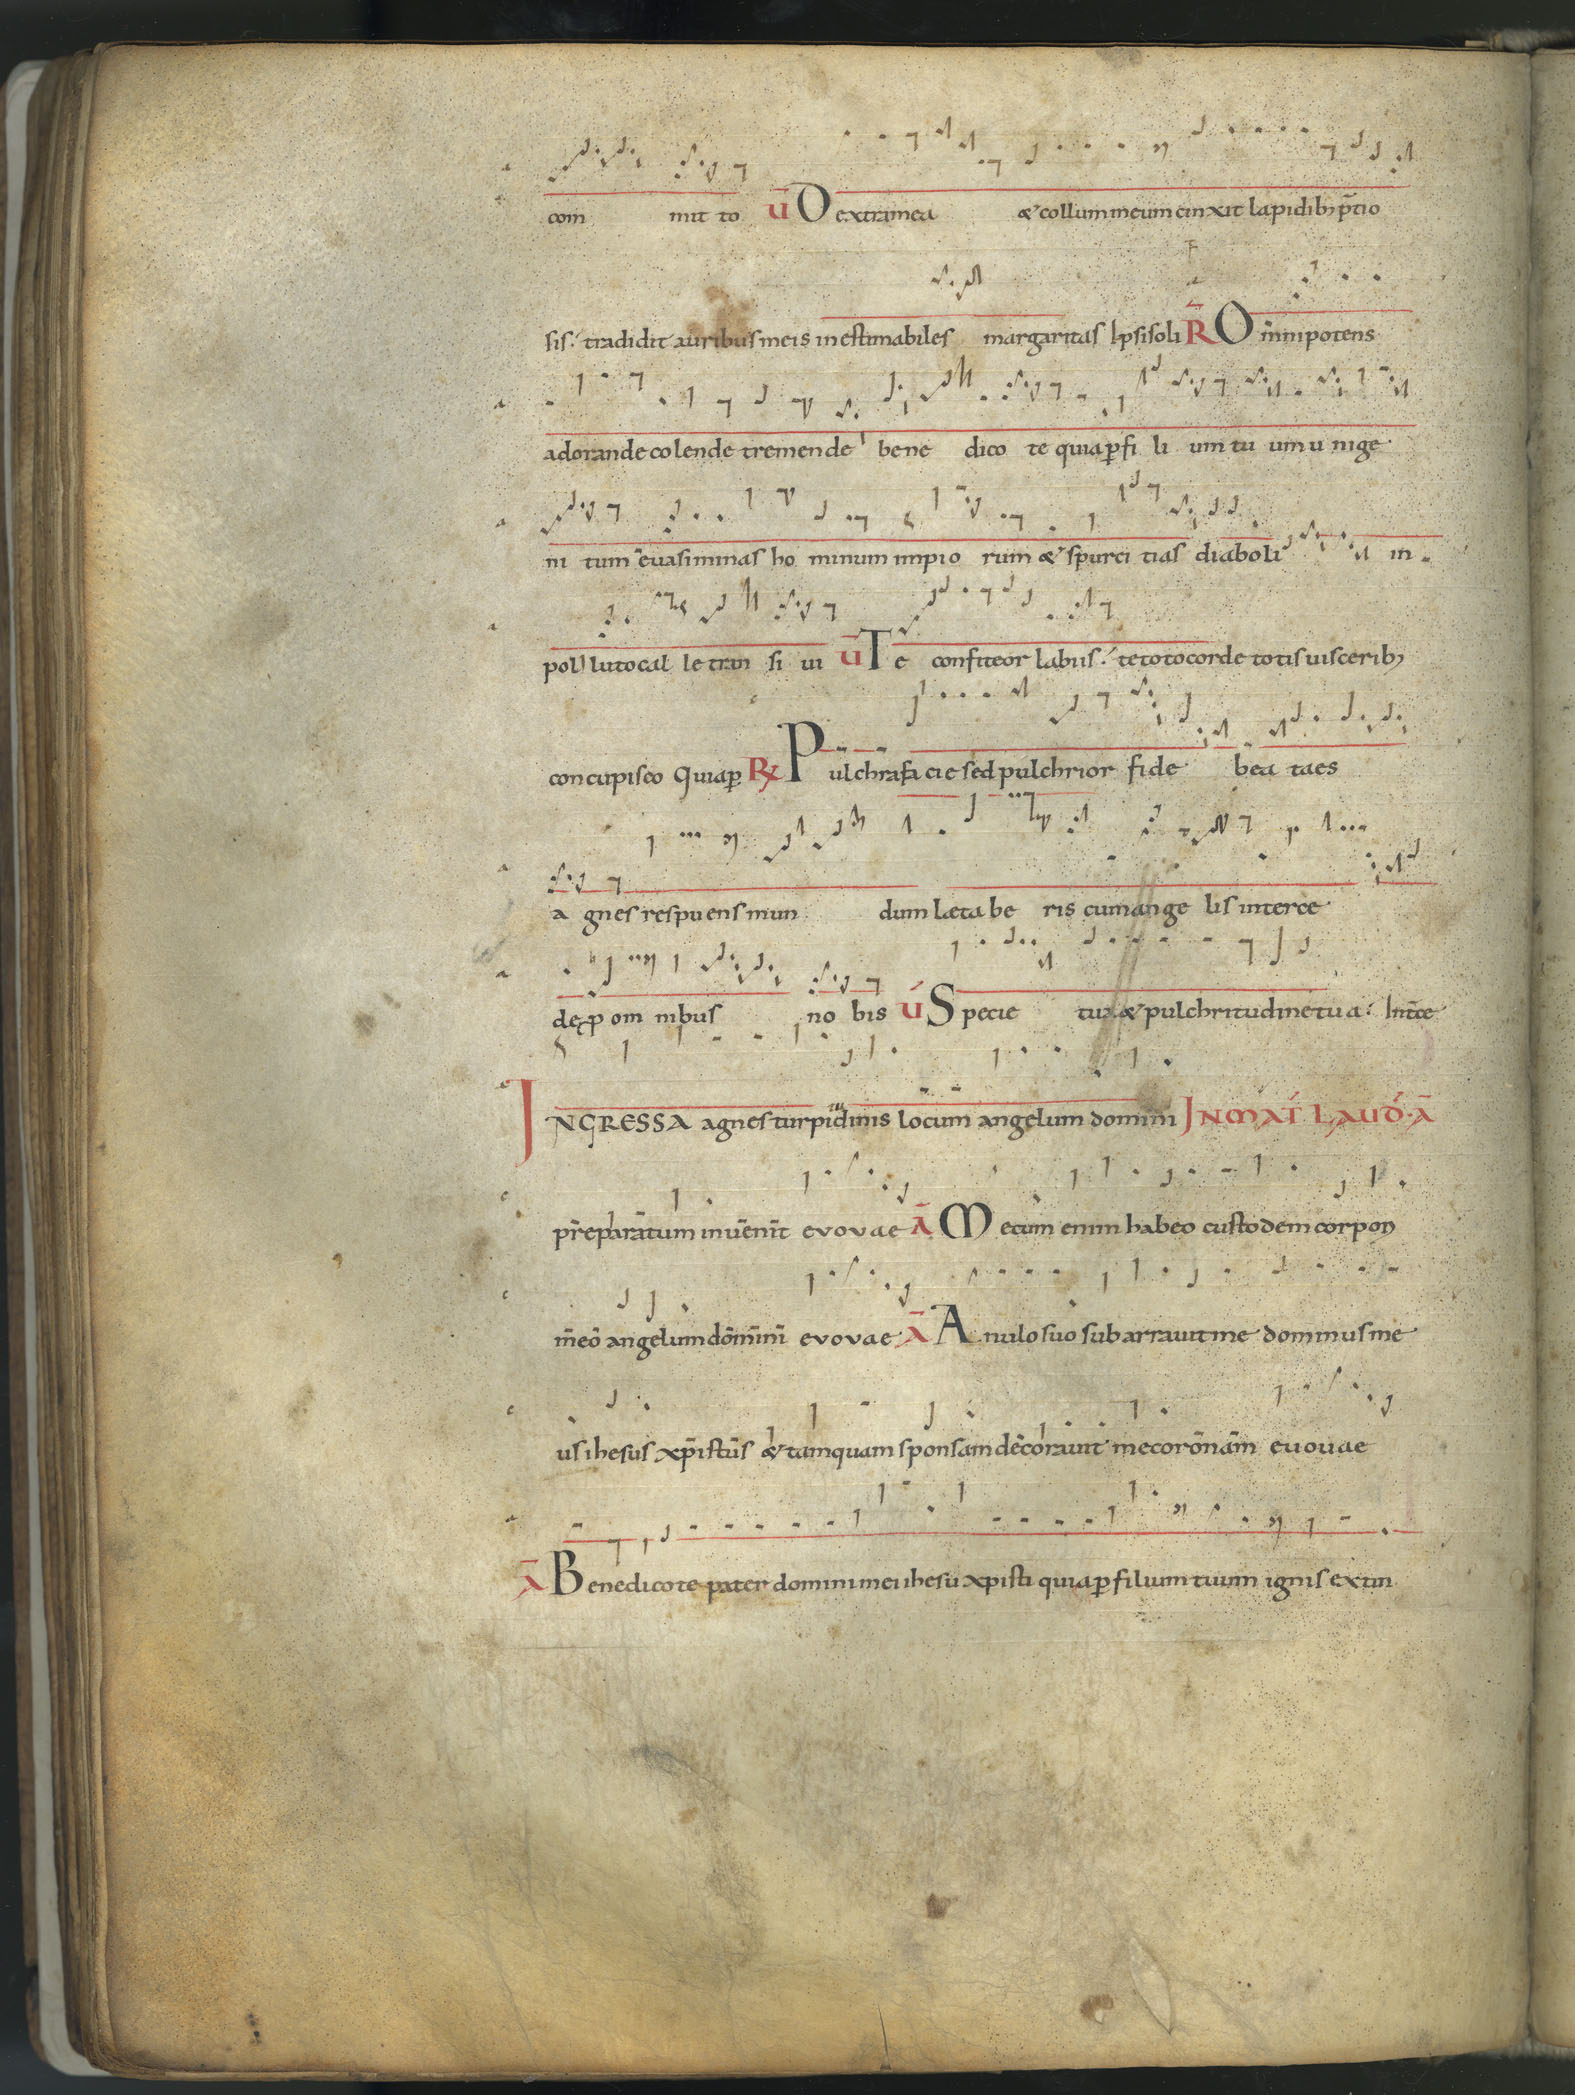 com mit to v̄ Dextram mea & collum meum cinxit lapidibꝫ p̄tio
sis. tradidit auribus meis inestimabiles margaritas Ipsi soli R̄ Omnipotens
adorande colende tremende bene dico te quia ꝑ fi li um tu um u nige
ni tum euasi minas ho minum impio rum & spurci tias diaboli in
pol luto cal le tran si ui v̄ Te confiteor labiis. te toto corde totis uisceribꝫ
concupisco Quia ꝑ R̄ Pulchra facie sed pulchrior fide bea ta es
a gnes respuens mun dum læta be ris cum ange lis interce
de ꝓ om nibus no bis v̄ Specie tua & pulchritudine tua. Int̄ce
INGRESSA agnes turpitudinis locum angelum domini IN MAT̄ LAUD̄. Ā
preparatum inuenit evovae Ā Mecum enim habeo custodem corporis
meo angelum domini evovae Ā Anulo suo subarrauit me dominus me
us ihesus xp̄istus & tamquam sponsam decorauit me coronam euouae
Ā Benedico te pater domini mei ihesu xpisti quia ꝑ filium tuum ignis extin